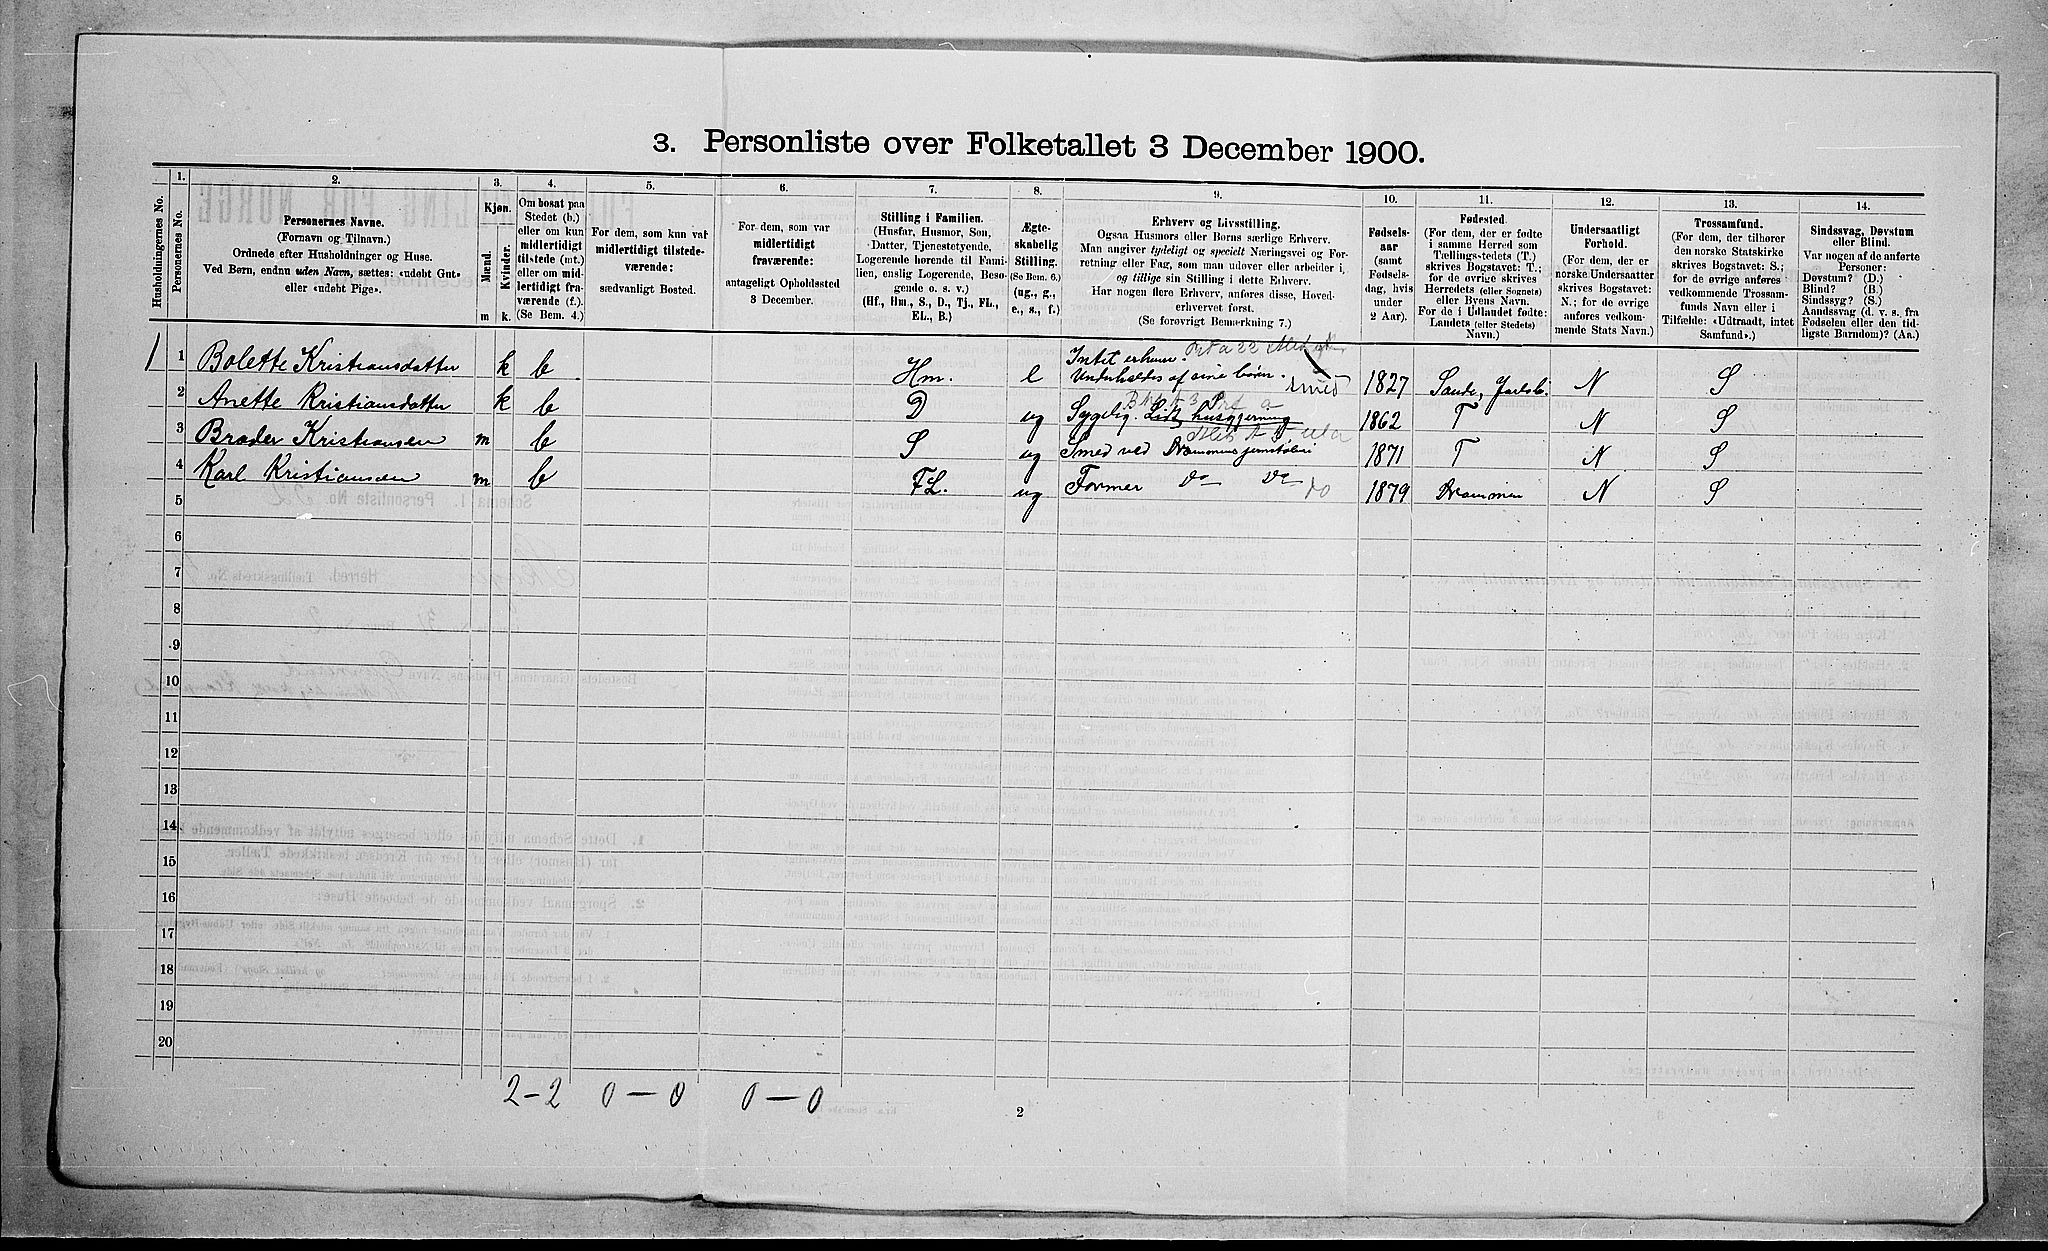 3. Personliste over Folketallet 3 December 1900.
1. 2. 3. 4. 5. 6. 7. 8. 9. 10. 11. 12. 13. 14.
Husholdningernes No.
Personernes No.
Personernes Navne.
(Fornavn og Tilnavn.)
Ordnede efter Husholdninger og Huse.
Ved Børn, endnu uden Navn, sættes: «udøbt Gut»
eller «udøbt Pige».
Kjøn.
Mænd.
Kvinder.
m k.
Om bosat paa
Stedet (b.)
eller om kun
midlertidigt
tilstede (mt.)
eller om mid-
lertidigt fra-
værende (f.).
(Se Bem. 4.)
For dem, som kun var
midlertidigt tilstede-
værende:
sædvanligt Bosted.
For dem, som var
midlertidigt
fraværende:
antageligt Opholdssted
3 December.
Stilling i Familien.
(Husfar, Husmor, Søn,
Datter, Tjenestetyende,
Logerende hørende til Fami-
lien, enslig Logerende, Besø-
gende o. s. v.)
(Hf., Hm., S., D., Tj., FL.,
EL., B.)
Ægte-
skabelig
Stilling.
(Se Bem. 6.)
(ug., g.,
e., s., f.)
Erhverv og Livsstilling.
Ogsaa Husmors eller Børns særlige Erhverv.
Man angiver tydeligt og specielt Næringsvei og For-
retning eller Fag, som man udøver eller arbeider i,
og tillige sin Stilling i dette Erhverv.
Har nogen flere Erhverv, anføres disse, Hoved-
erhvervet først.
(Se forøvrigt Bemerkning 7.)
Fødsels-
aar
(samt
Fødsels-
dag, hvis
under
2 Aar).
Fødested.
(For dem, der er fødte
i samme Herred som
Tællings-tedets (T.)
skrives Bogstavet: T.;
for de øvrige skrives
Herredets (eller Sognets)
eller Byens Navn.
For de i Udlandet fødte:
Landets (eller Stedets)
Navn.)
Undersaatligt
Forhold.
(For dem, der er
norske Undersaatter
skrives Bogstavet:
N.; for de øvrige
anføres vedkom-
mende Stats Navn.)
Trossamfund.
(For dem, der tilhører
den norske Statskirke
skrives Bogstavet: S.;
for de øvrige anføres
vedkommende Trossam-
funds Navn eller i
Tilfælde: «Udtraadt, intet
Samfund».)
Sindssvag, Døvstum
eller Blind.
Var nogen af de anførte
Personer:
Døvstum? (D.)
Blind? (B.)
Sindssyg? (S.)
Aandssvag (d. v. s. fra
Fødselen eller den tid-
ligste Barndom)? (Aa.)
1 1 Bolette Kristiansdatter k b Hm. e Intet erhverv. Underholdes af sine børn. Smed 1827 Sande, Jarlsb. N S
2 Anette Kristiansdatter k b D ug Sygelig. Lidt husgjerning 1862 T N S
3 Brader Kristiansen m b S ug Smed ved Drammens jernstøberi 1871 T N S
4 Karl Kristiansen m b FL. ug Former Do Do do 1879 Drammen N S
5
6
7
8
9
10
11
12
13
14
15
16
17
18
19
20
2-2 0-0 0-0
2